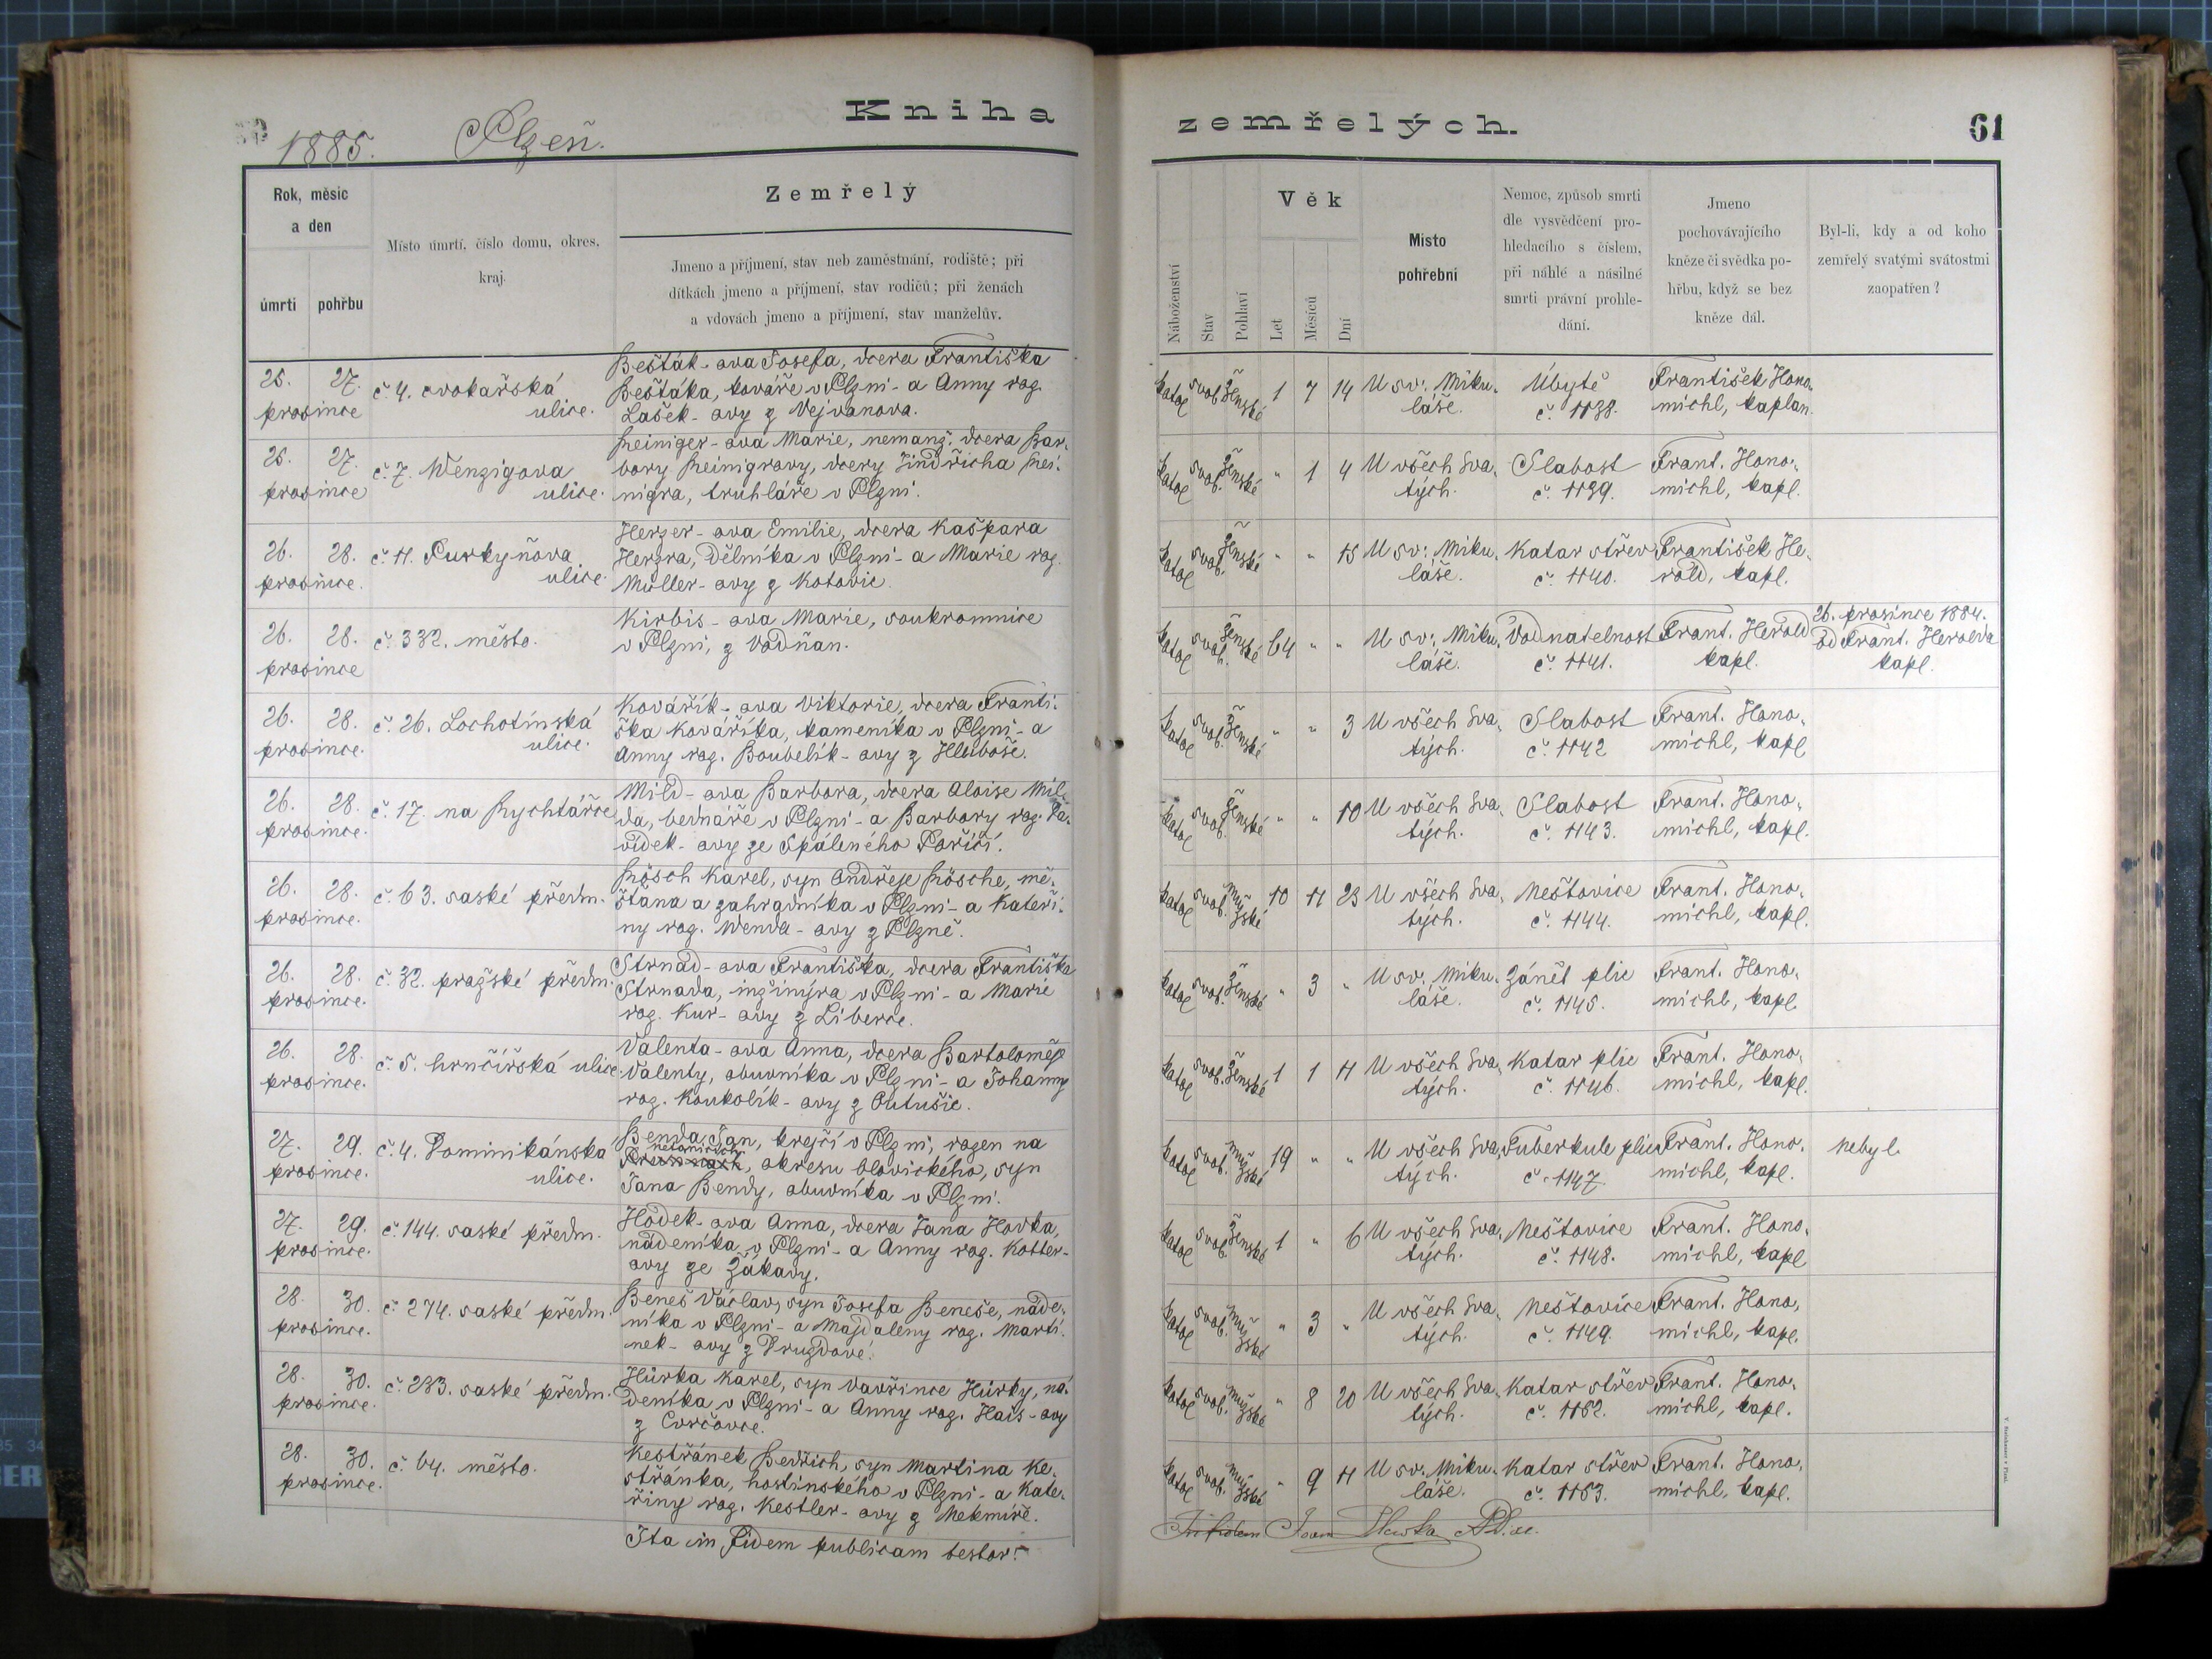 1885. Plzeň.
Kniha
Rok, měsíc
a den
úmrtí
pohřbu
Místo úmrtí, číslo domu, okres,
kraj.
Zemřelý
Jmeno a příjmení, stav neb zaměstnání, rodiště; při
dítkách jmeno a příjmení, stav rodičů; při ženách
a vdovách jmeno a příjmení, stav manželův.
25. 27.
prosince
č. 4. cvokařská
ulice.
Bešták-ova Josefa, dcera Františka
Beštáka, kováře v Plzni - a Anny roz.
Lašek-ovy z Vejvanova.
25. 27.
prosince
č. 7. Wenzigova
ulice.
Reiniger-ova Marie, nemanž. dcera Bar-
bory Reinigrovy, dcery Jindřicha Rei-
nigra, truhláře v Plzni.
26. 28.
prosince.
č. 11. Purkyňova
ulice.
Herzer-ova Emilie, dcera Kašpara
Herzra, dělníka v Plzni - a Marie roz.
Müller-ovy z Kotovic.
26. 28.
prosince
č. 332. město.
Kirbis-ova Marie, soukromnice
v Plzni, z Vodňan.
26. 28.
prosince.
č. 26. Lochotínská
ulice.
Kovářík-ova Viktorie, dcera Franti-
ška Kováříka, kameníka v Plzni - a
Anny roz. Boubelík-ovy z Hluboše.
26. 28.
prosince.
č. 17. na Rychtářce
Mild-ova Barbora, dcera Aloise Mil-
da, bednáře v Plzni - a Barbory roz. Da-
vídek-ovy ze Spáleného Poříčí.
26. 28.
prosince.
č. 63. saské předm.
Rösch Karel, syn Ondřeje Rösche, mě-
šťana a zahradníka v Plzni - a Kateři-
ny roz. Wenda-ovy z Plzně.
26. 28.
prosince.
č. 32. pražské předm.
Strnad-ova Františka, dcera Františka
Strnada, inžinýra v Plzni - a Marie
roz. Kur-ovy z Liberce.
26. 28.
prosince.
č. 5. hrnčířská ulice.
Valenta-ova Anna, dcera Bartoloměje
Valenty, obuvníka v Plzni - a Johanny
roz. Koukolík-ovy z Outušic.
27. 29.
prosince.
č. 4. Dominikánská
ulice.
Benda Jan, krejčí v Plzni, rozen na
, okresu blovického, syn
Jana Bendy, obuvníka v Plzni.
27. 29.
prosince.
č. 144. saské předm.
Hodek-ova Anna, dcera Jana Hodka,
nádeníka v Plzni - a Anny roz. Kotter-
ovy ze Žákavy.
28. 30.
prosince.
č. 274. saské předm.
Beneš Václav, syn Josefa Beneše, náde-
níka v Plzni - a Majdaleny roz. Martí-
nek-ovy z Druzdové.
28. 30.
prosince.
č. 283. saské předm.
Hůrka Karel, syn Vavřince Hůrky, ná-
deníka v Plzni - a Anny roz. Hais-ovy
z Cvrčovce.
28. 30.
prosince.
č. 64. město.
Kestřánek Bedřich, syn Martina Ke-
střánka, hostinského v Plzni - a Kate-
řiny roz. Kestler-ovy z Nekmíře.
Ita in fidem publicam testor:
zemřelých.
61
Náboženství
Stav
Pohlaví
Věk
Let
Měsíců
Dní
Místo
pohřební
Nemoc, způsob smrti
dle vysvědčení pro-
hledacího s číslem,
při náhlé a násilné
smrti právní prohle-
dání.
Jmeno
pochovávajícího
kněze či svědka po-
hřbu, když se bez
kněze dál.
Byl-li, kdy a od koho
zemřelý svatými svátostmi
zaopatřen?
katol svob. ženské 1 7 14 U sv. Miku-
láše.
Úbytě
č. 1138.
František Hono-
michl, kaplan.
katol svob. ženské " 1 4 U všech Sva-
tých.
Slabost
č. 1139.
Frant. Hono-
michl, kapl.
katol svob. ženské " " 15 U sv. Miku-
láše.
Katar střev
č. 1140.
František He-
rold, kapl.
katol svob. ženské 64 " " U sv. Miku-
láše.
Vodnatelnost
č. 1141.
Frant. Herold
kapl.
26. prosince 1884.
od Frant. Herolda
kapl.
katol svob. ženské " " 3 U všech Sva-
tých.
Slabost
č. 1142
Frant. Hono-
michl, kapl
katol svob. ženské " " 10 U všech Sva-
tých.
Slabost
č. 1143.
Frant. Hono-
michl, kapl.
katol svob. mužské 10 11 23 U všech Sva-
tých.
Neštovice
č. 1144.
Frant. Hono-
michl, kapl.
katol svob. ženské " 3 " U sv. Miku-
láše.
Zánět plic
č. 1145.
Frant. Hono-
michl, kapl
katol svob. ženské 1 1 11 U všech Sva-
tých.
Katar plic
č. 1146.
Frant. Hono-
michl, kapl.
katol svob. mužské 19 " " U všech Sva-
tých.
Tuberkule plic
č. 1147.
Frant. Hono-
michl, kapl.
nebyl.
katol svob. ženské 1 " 6 U všech Sva-
tých.
Neštovice
č. 1148.
Frant. Hono-
michl, kapl
katol svob. mužské " 3 " U všech Sva-
tých.
Neštovice
č. 1149.
Frant. Hono-
michl, kapl.
katol svob. mužské " 8 20 U všech Sva-
tých.
Katar střev
č. 1152.
Frant. Hono-
michl, kapl.
katol svob. mužské " 9 11 U sv. Miku-
láše.
Katar střev
č. 1153.
Frant. Hono-
michl, kapl.